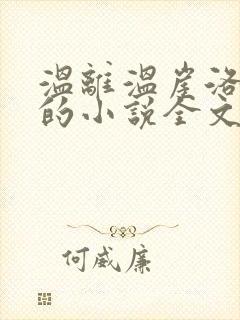 温離温崖洛
的小說全文
何威廉